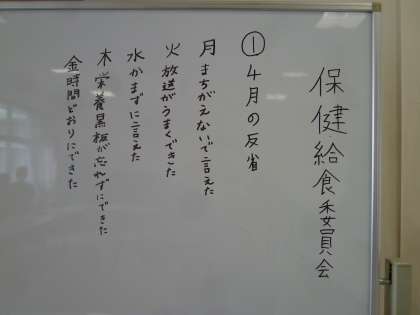 保健給食委員会
①4月の反省
月まちがえないで言えた
火放送がうまくできた
水かまずに言えた
木栄養黒板が忘れずにできた
金時間どおりにできた